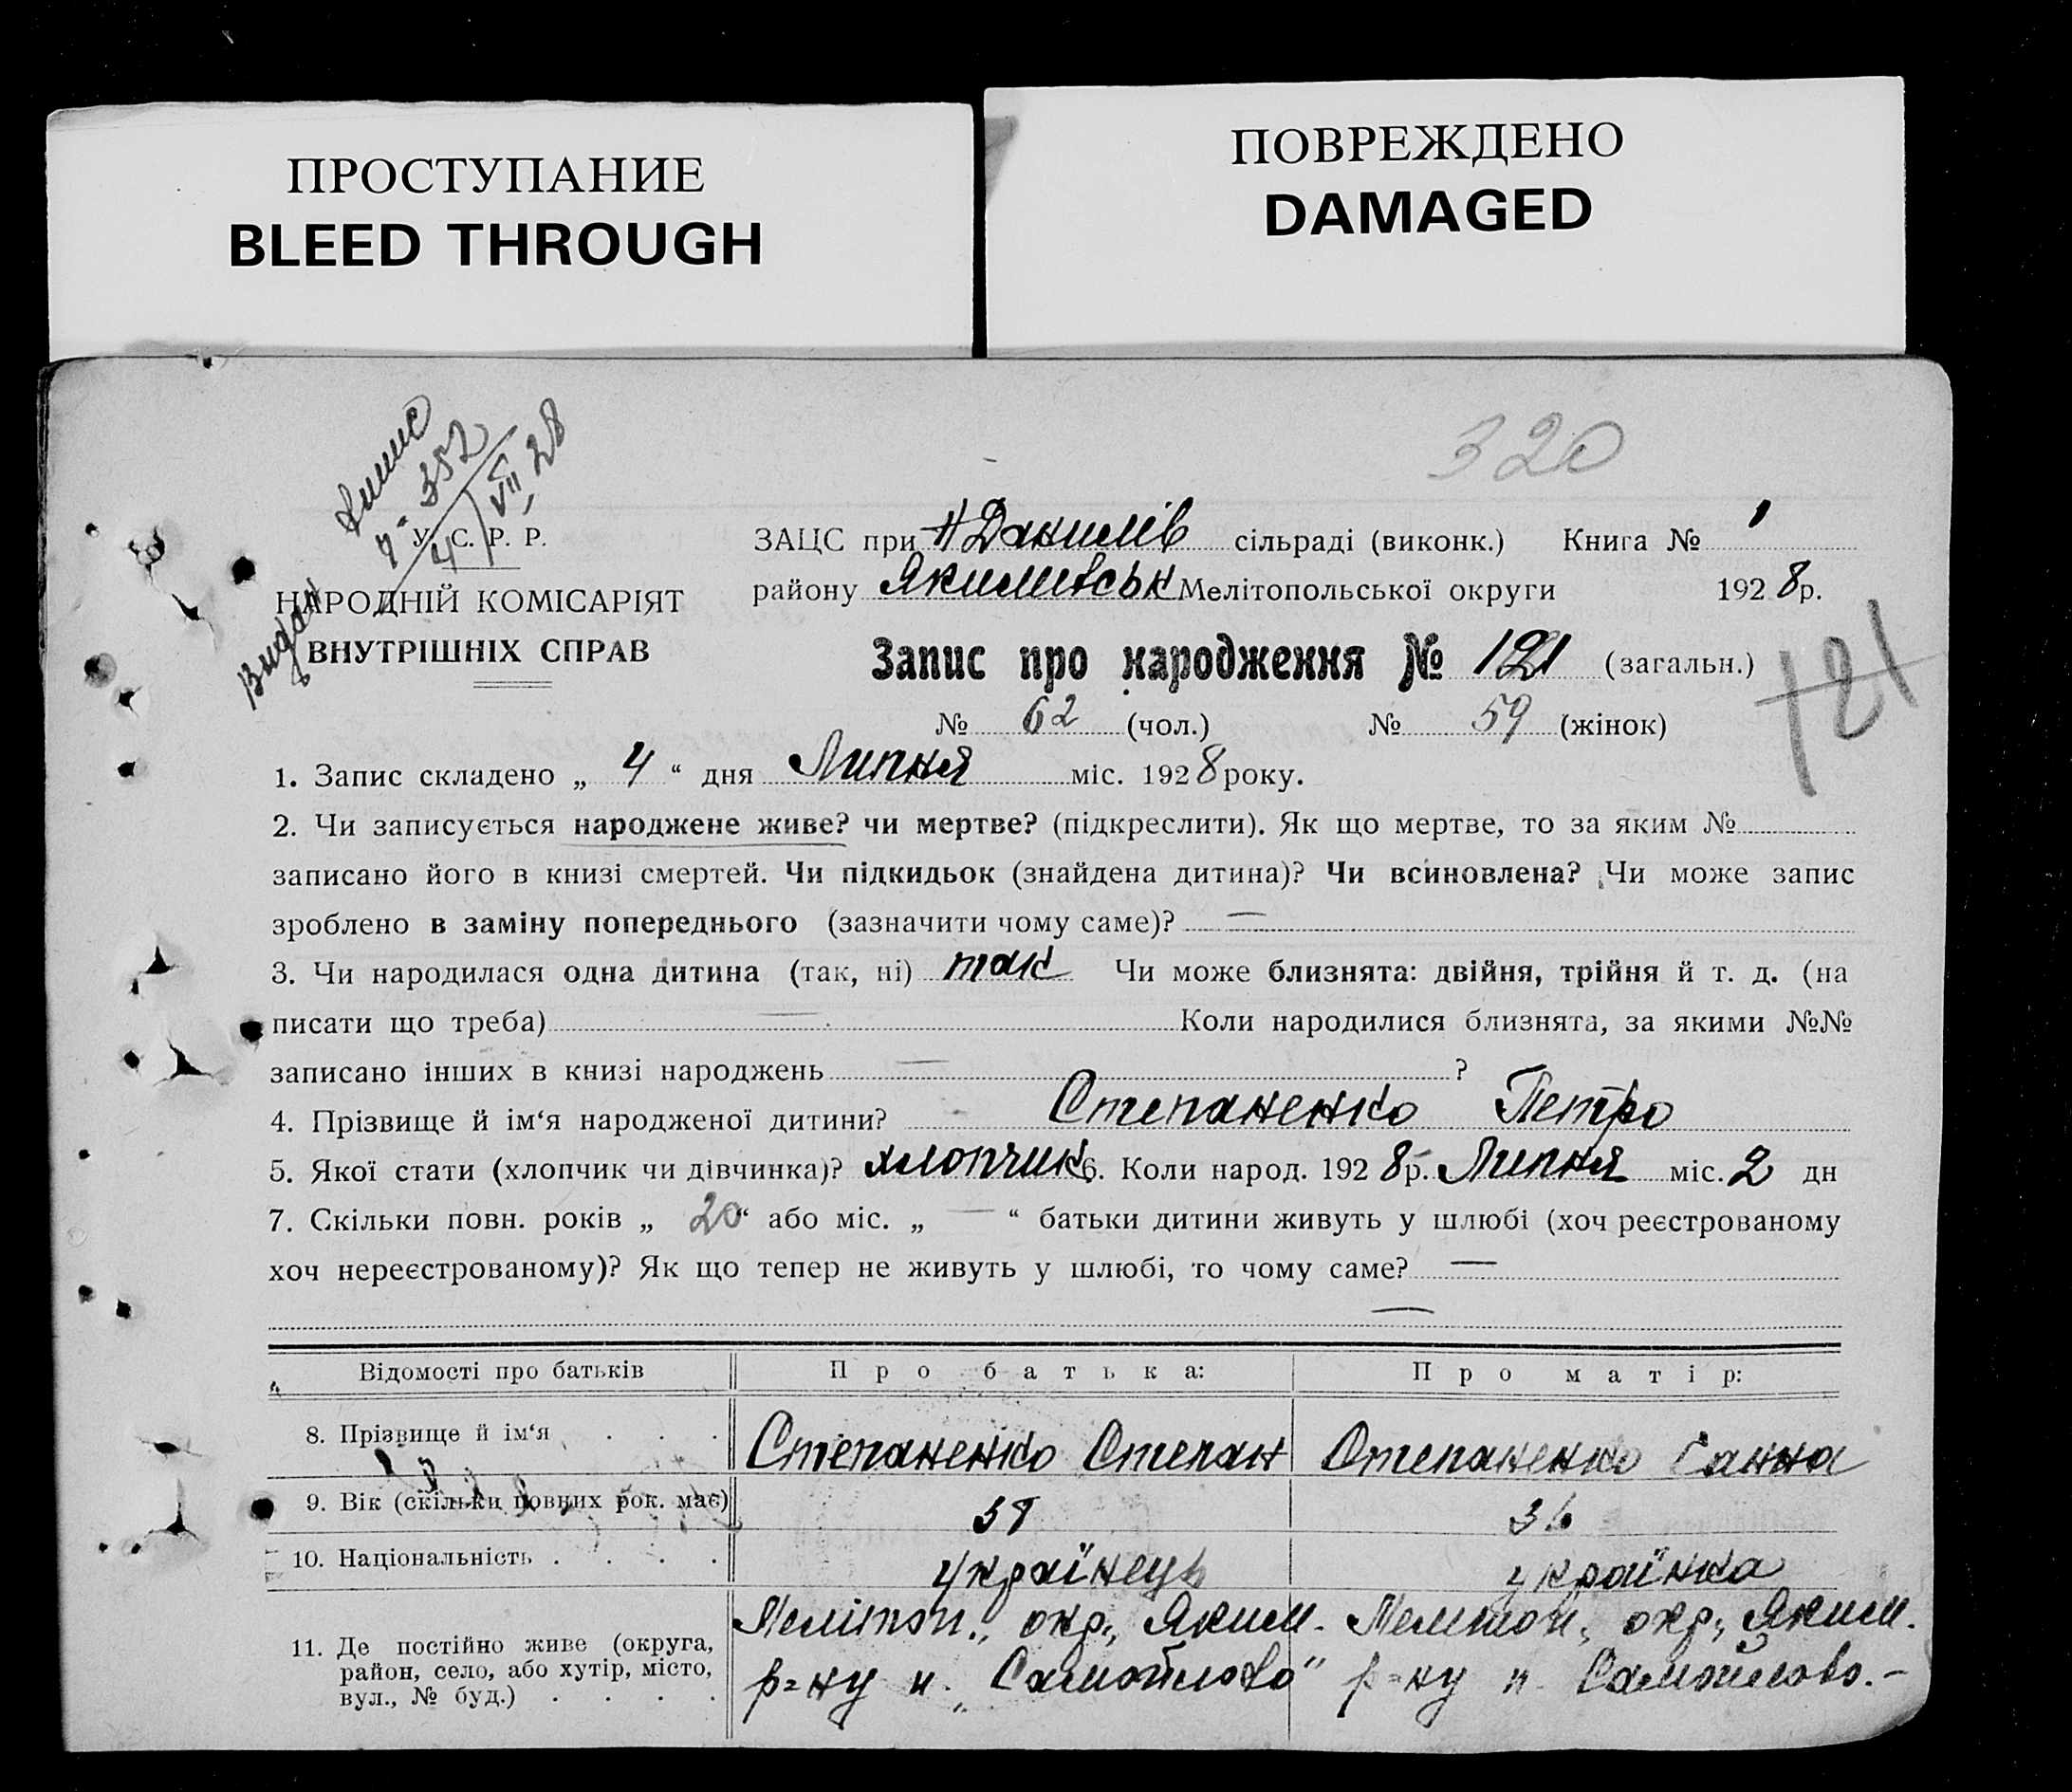 ПРОСТУПАНИЕ
BLEED THROUGH
ПОВРЕЖДЕНО
DAMAGED
320
Видан
№ 352
4/VII 28
У. С. Р. Р.
НАРОДНІЙ КОМІСАРІЯТ
ВНУТРІШНІХ СПРАВ
ЗАЦС при Н Данилів сільраді (виконк.) Книга № 1
району Якимівськ Мелітопольської округи 1928р.
Запис про народження № 121 (загальн.)
121
№ 62 (чол.) № 59 (жінок)
1. Запис складено „ 4 “ дня Липня міс. 1928 року.
2. Чи записується народжене живе? чи мертве? (підкреслити). Як що мертве, то за яким №
записано його в книзі смертей. Чи підкидьок (знайдена дитина)? Чи всиновлена? Чи може запис
зроблено в заміну попереднього (зазначити чому саме)? —
3. Чи народилася одна дитина (так, ні) так Чи може близнята: двійня, трійня й т. д. (на
писати що треба) — Коли народилися близнята, за якими №№
записано інших в книзі народжень — ?
4. Прізвище й ім‘я народженої дитини? Степаненко Петро
5. Якої стати (хлопчик чи дівчинка)? хлопчик 6. Коли народ. 1928р. Липня міс. 2 дн
7. Скільки повн. років „ 20 “ або міс. „ — “ батьки дитини живуть у шлюбі (хоч реєстрованому
хоч нереєстрованому)? Як що тепер не живуть у шлюбі, то чому саме? —
—
Відомості про батьків Про батька: Про матір:
8. Прізвище й ім‘я . . . Степаненко Степан Степаненко Ганна
9. Вік (скільки повних рок. має) 38 36
10. Національність . . . . українець українка
11. Де постійно живе (округа,
район, село, або хутір, місто,
вул., № буд.) . . . .
Меліт оп., окр., Яким.
р=ну н. „Самойлово“
Мелітоп., окр., Яким.
р=ну н. Самойлово.–